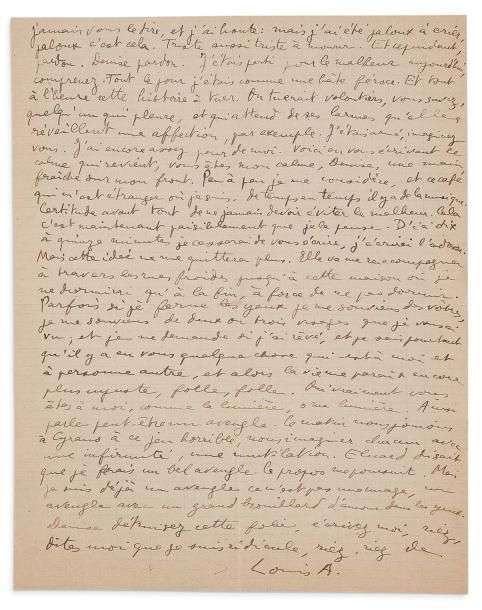 jamais vous le dire, et j'ai honte : mais j'ai été jaloux à crier,
jaloux c'est cela. Triste aussi triste à mourir. Et cependant,
pardon. Denise pardon. J'étais parti pour le malheur aujourd'hui,
comprenez. Tout le jour j'étais comme une bête féroce. Et tout
à l'heure cette histoire à tuer. On tuerait volontiers, vous savez,
quelqu'un qui pleure, et qu'attend de ses larmes qu'elles
réveillent une affection, par exemple. J'étais armé, imaginez
vous. J'ai encore assez peur de moi. Voici en vous écrivant le
calme qui revient, vous êtes mon calme, Denise, une main
fraîche sur mon front. Peu à peu je me considère, et ce café
qui m'est étranger où je suis. De temps en temps il y a de la musique.
Certitude avant tout de ne jamais devoir éviter le malheur. Cela
c'est maintenant paisiblement que je le pense. D'ici dix
à quinze minutes je cesserai de vous écrire, j'écrirai l'adresse.
Mais cette idée ne me quittera plus. Elle va me raccompagner
à travers les rues froides jusqu'à cette maison où je
ne dormirai qu'à la fin, à force de ne pas dormir.
Parfois si je ferme les yeux je me souviens des vôtres,
je me souviens de deux ou trois visages que je vous ai
vu, et je me demande si j'ai rêvé, et je sais pourtant
qu'il y a en vous quelque chose qui est à moi et
à personne autre, et alors la vie me paraît encore
plus injuste, folle, folle. Ou vraiment vous
êtes à moi, comme la lumière, ô ma lumière. Ainsi
parle peut-être un aveugle. Ce matin nous jouions
à Cyrano à ce jeu horrible, nous imaginer chacun avec
une infirmité, une mutilation. Eluard disait
que je ferais un bel aveugle le propos se poursuit. Moi
je suis déjà un aveugle ce n'est pas un mensonge, un
aveugle avec un grand brouillard d'amour dans les yeux.
Denise détruisez cette folie, écrivez moi, riez,
dites moi que je suis ridicule, riez, riez de
Louis A.